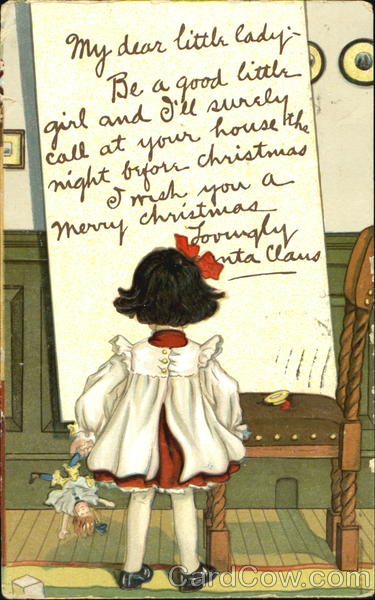 My dear little lady:-
Be a good little
girl and I'll surely
call at your house the
night before christmas
I wish you a
merry christmas
Lovingly
nta Claus
CardCow.com